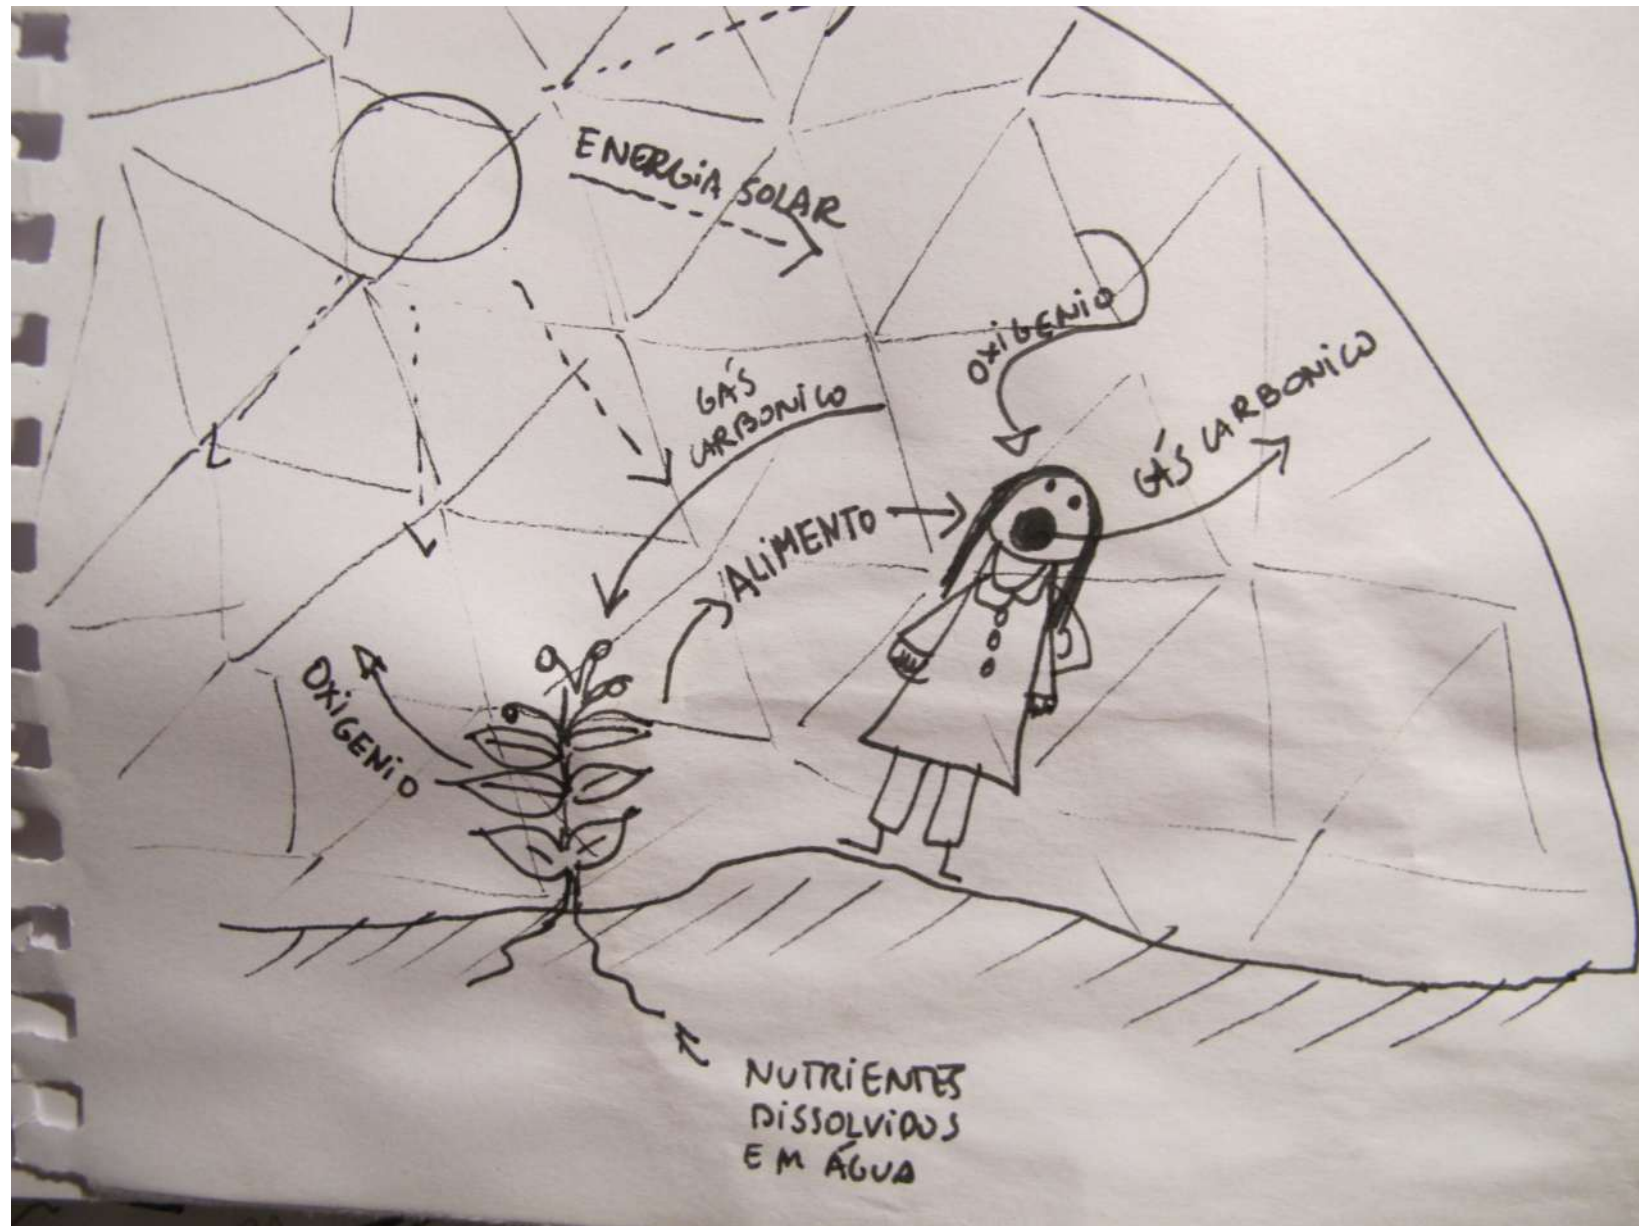 ENERGIA SOLAR
OXIGENIO
GÁS
CARBONICO
GÁS CARBONICO
ALIMENTO
OXIGENIO
NUTRIENTES
DISSOLVIDOS
EM ÁGUA